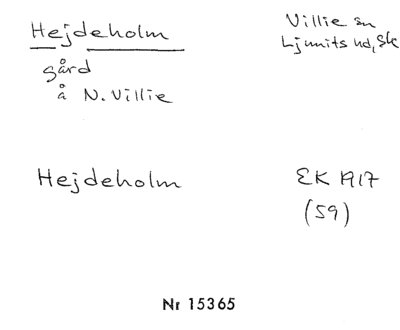 Hejdeholm
Villie sn
Ljunits hd, Sk
gård
å N. Villie
Hejdeholm
EK 1917
(59)
Nr 15365